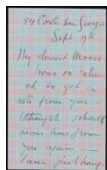 54 Costa San Giorgio
Sept 19th
My dearest Moore
I was so reliev-
ed to get a
note from you -
I thought I should
never hear from
you again -
I am just hang-